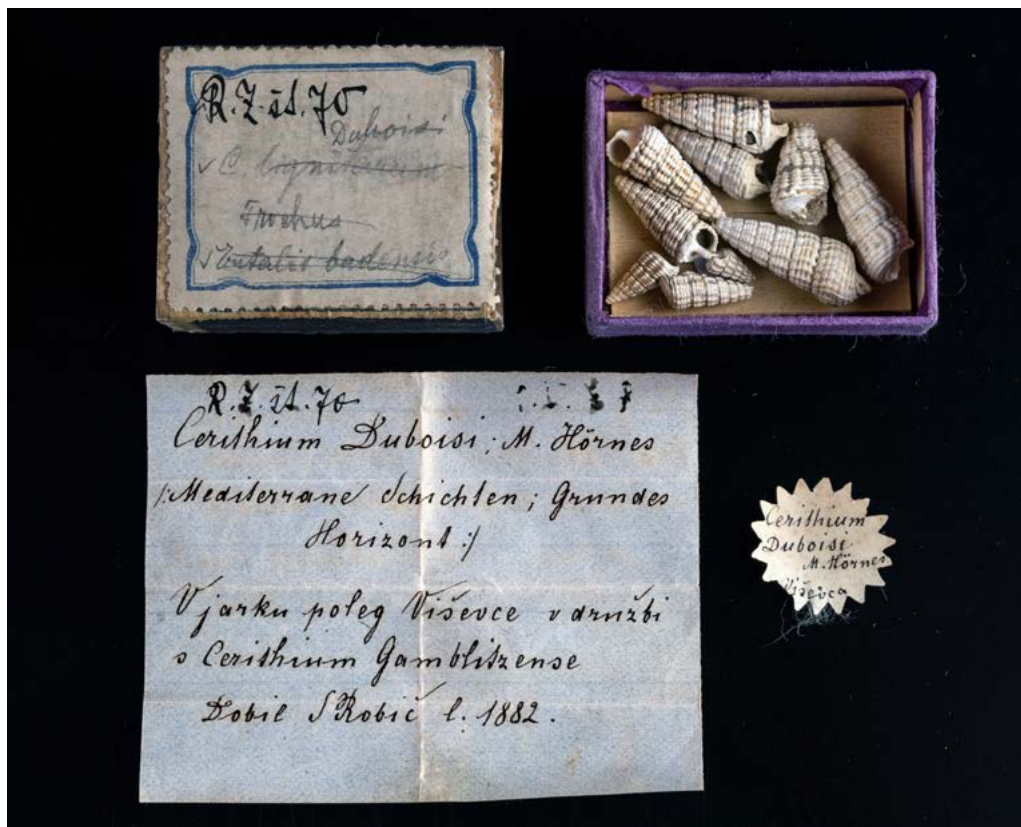 R. Z. št. 70
Duboisi
✓ C lignitarum
Trochus
✓ badensis
R. Z. št. 70
Cerithium Duboisi; M. Hörnes
/:Mediterrane Schichten; Grundes
Horizont:/
V jarku poleg Viševce v družbi
s Cerithium Gamblitzense
Dobil S Robič l. 1882.
Cerithium
Duboisi
M. Hörnes
Viševca